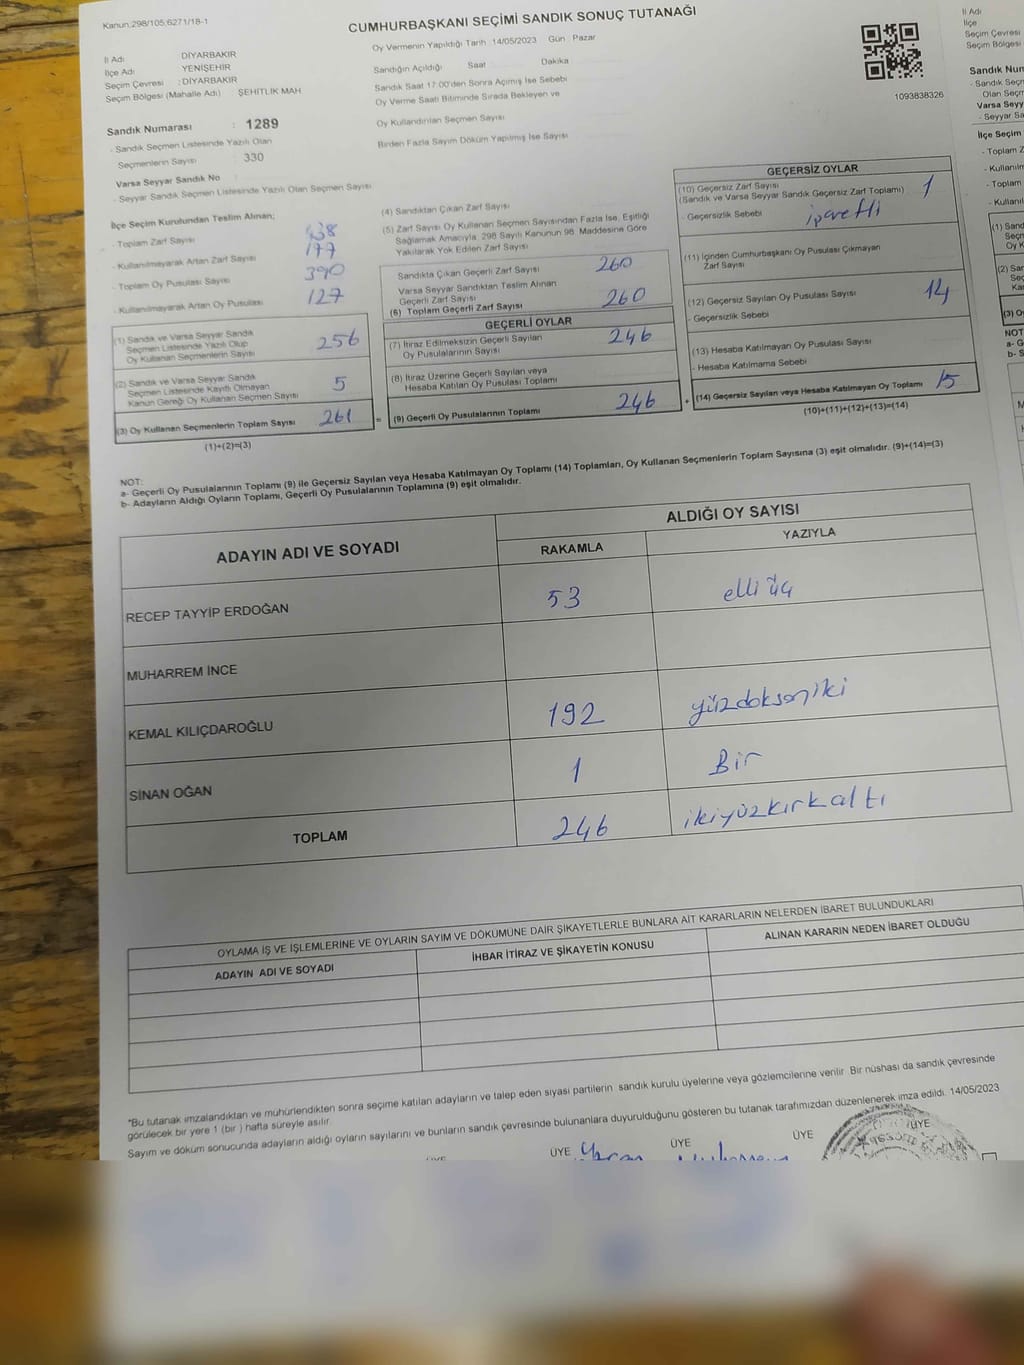 Kanun:298/105;6271/18-1
CUMHURBAŞKANI SEÇİMİ SANDIK SONUÇ TUTANAĞI
İl Adı DİYARBAKIR
İlçe Adı YENİŞEHİR
Seçim Çevresi : DİYARBAKIR
Seçim Bölgesi (Mahalle Adı) : ŞEHİTLİK MAH
Sandık Numarası : 1289
- Sandık Seçmen Listesinde Yazılı Olan
Seçmenlerin Sayısı : 330
Varsa Seyyar Sandık No :
- Seyyar Sandık Seçmen Listesinde Yazılı Olan Seçmen Sayısı
Oy Vermenin Yapıldığı Tarih : 14/05/2023 Gün : Pazar
Sandığın Açıldığı Saat Dakika
Sandık Saat 17:00'den Sonra Açılmış İse Sebebi
Oy Verme Saati Bitiminde Sırada Bekleyen ve
Oy Kullandırılan Seçmen Sayısı
Birden Fazla Sayım Döküm Yapılmış İse Sayısı
1093838326
İlçe Seçim Kurulundan Teslim Alınan;
- Toplam Zarf Sayısı 438
- Kullanılmayarak Artan Zarf Sayısı 177
- Toplam Oy Pusulası Sayısı 390
- Kullanılmayarak Artan Oy Pusulası 127
(1) Sandık ve Varsa Seyyar Sandık
Seçmen Listesinde Yazılı Olup
Oy Kullanan Seçmenlerin Sayısı 256
(2) Sandık ve Varsa Seyyar Sandık
Seçmen Listesinde Kayıtlı Olmayan
Kanun Gereği Oy Kullanan Seçmen Sayısı 5
(3) Oy Kullanan Seçmenlerin Toplam Sayısı 261 =
(1)+(2)=(3)
(4) Sandıktan Çıkan Zarf Sayısı
(5) Zarf Sayısı Oy Kullanan Seçmen Sayısından Fazla İse, Eşitliği
Sağlamak Amacıyla, 298 Sayılı Kanunun 98. Maddesine Göre
Yakılarak Yok Edilen Zarf Sayısı
Sandıkta Çıkan Geçerli Zarf Sayısı 260
Varsa Seyyar Sandıktan Teslim Alınan
Geçerli Zarf Sayısı
(6) Toplam Geçerli Zarf Sayısı 260
GEÇERLİ OYLAR
(7) İtiraz Edilmeksizin Geçerli Sayılan
Oy Pusulalarının Sayısı 246
(8) İtiraz Üzerine Geçerli Sayılan veya
Hesaba Katılan Oy Pusulası Toplamı
(9) Geçerli Oy Pusulalarının Toplamı 246 +
GEÇERSİZ OYLAR
(10) Geçersiz Zarf Sayısı
(Sandık ve Varsa Seyyar Sandık Geçersiz Zarf Toplamı) 1
- Geçersizlik Sebebi işaretli
(11) İçinden Cumhurbaşkanı Oy Pusulası Çıkmayan
Zarf Sayısı
(12) Geçersiz Sayılan Oy Pusulası Sayısı 14
- Geçersizlik Sebebi
(13) Hesaba Katılmayan Oy Pusulası Sayısı
- Hesaba Katılmama Sebebi
(14) Geçersiz Sayılan veya Hesaba Katılmayan Oy Toplamı 15
(10)+(11)+(12)+(13)=(14)
NOT:
a- Geçerli Oy Pusulalarının Toplamı (9) ile Geçersiz Sayılan veya Hesaba Katılmayan Oy Toplamı (14) Toplamları, Oy Kullanan Seçmenlerin Toplam Sayısına (3) eşit olmalıdır. (9)+(14)=(3)
b- Adayların Aldığı Oyların Toplamı, Geçerli Oy Pusulalarının Toplamına (9) eşit olmalıdır.
ADAYIN ADI VE SOYADI
ALDIĞI OY SAYISI
RAKAMLA YAZIYLA
RECEP TAYYİP ERDOĞAN 53 elli üç
MUHARREM İNCE
KEMAL KILIÇDAROĞLU 192 yüzdoksaniki
SİNAN OĞAN 1 Bir
TOPLAM 246 ikiyüzkırkaltı
OYLAMA İŞ VE İŞLEMLERİNE VE OYLARIN SAYIM VE DÖKÜMÜNE DAİR ŞİKAYETLERLE BUNLARA AİT KARARLARIN NELERDEN İBARET BULUNDUKLARI
ADAYIN ADI VE SOYADI İHBAR İTİRAZ VE ŞİKAYETİN KONUSU ALINAN KARARIN NEDEN İBARET OLDUĞU
*Bu tutanak imzalandıktan ve mühürlendikten sonra seçime katılan adayların ve talep eden siyasi partilerin sandık kurulu üyelerine veya gözlemcilerine verilir. Bir nüshası da sandık çevresinde
görülecek bir yere 1 (bir ) hafta süreyle asılır.
Sayım ve döküm sonucunda adayların aldığı oyların sayılarını ve bunların sandık çevresinde bulunanlara duyurulduğunu gösteren bu tutanak tarafımızdan düzenlenerek imza edildi. 14/05/2023
ÜYE ÜYE ÜYE ÜYE
İl Adı
İlçe
Seçim Çevresi
Seçim Bölgesi
Sandık Num
- Sandık Seç
Olan Seçm
Varsa Seyy
- Seyyar Sa
İlçe Seçim
- Toplam Z
- Kullanılm
- Toplam
- Kullanıl
(1) Sand
Seçm
Oy K
(2) Sa
(3) O
NOT
a- G
b- S